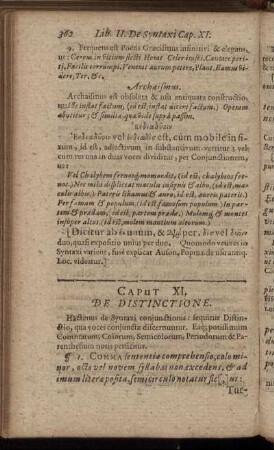 362 Lib. II. De Syntaxi Cap. XI.
9. Frequens est Poëtis Græcismus infinitivi & elegans,
ut: Cereus in vitium flecti Horat Celer insti. Cantare periti,
Facilis corrumpi. Veneas aurum petere, Plaut, Eamus
videre, Ter. &c.
Archaismus.
Archaismus est obsoleta & usu antiquata constructio,
instat factum, (id est, instat factum.) Operam
abutitur; & similia, quæ hic supra passim.
est, cum mobile in fixum,
id est, adjectivum in substantivum vertitur: vel
cum res una in duas voces dividitur, per Conjunctionem,
ut:
Vel Chalybem frenosque momordit, (id est, chalybeos frenos.)
Nec mihi displiceat maculis insignis & albo, (id est,
maculis albis.) Pateris libamus & auro, (id est, aureis pateris.)
Per famam & populum, (id est famosum populum.) In partem
& prædam, (id est, partem prædæ.) Molemque & montes
insuper altos, (id est, molem montium altorum.)
[Dicitur ab unum, & per, vel
duo, quasi expositio unius per duo. Quomodo veteres in
Syntaxi varient, fusè explicat Auson. Popma de usu antiq.
Loc. videatur.]
CAPUT XI,
DE DISTINCTIONE.
Hactenus de Syntaxi conjunctionis: sequitur Distinctio,
qua voces conjunctæ discernuntur. Eaque potissimum
Commatum, Colorum, Semicolorum, Periodorum & Parenthesium
notis perficitur.
¶ 1. COMMA sententiæ comprehensio, colo minor,
octo vel novem syllabas non excedens, & ad
imum literæ posita, semicirculo notatur sic [,] ut:
Tur-